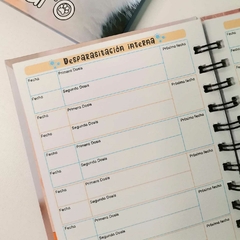 Desparasitación interna
Fecha Primera Dosis Próxima fecha
Fecha Segunda Dosis
Fecha Primera Dosis Próxima fecha
Fecha Segunda Dosis
Fecha Primera Dosis Próxima fecha
Fecha Segunda Dosis
Fecha Primera Dosis Próxima fecha
Fecha Segunda Dosis
Fecha Primera Dosis Próxima fecha
Fecha Segunda Dosis